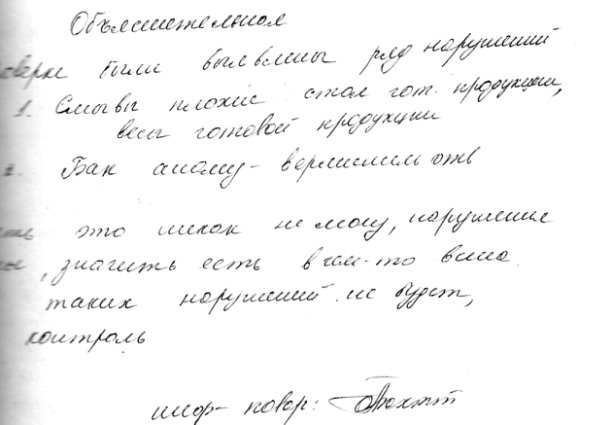 Объяснительная
были выявлены ряд нарушений
1. Смывы плохие стол гот. продукции,
весы готовой продукции
2. Бак
это никак не могу, нарушения
, значить есть в чем-то вина
таких нарушений не будет,
контроль
шеф-повар: